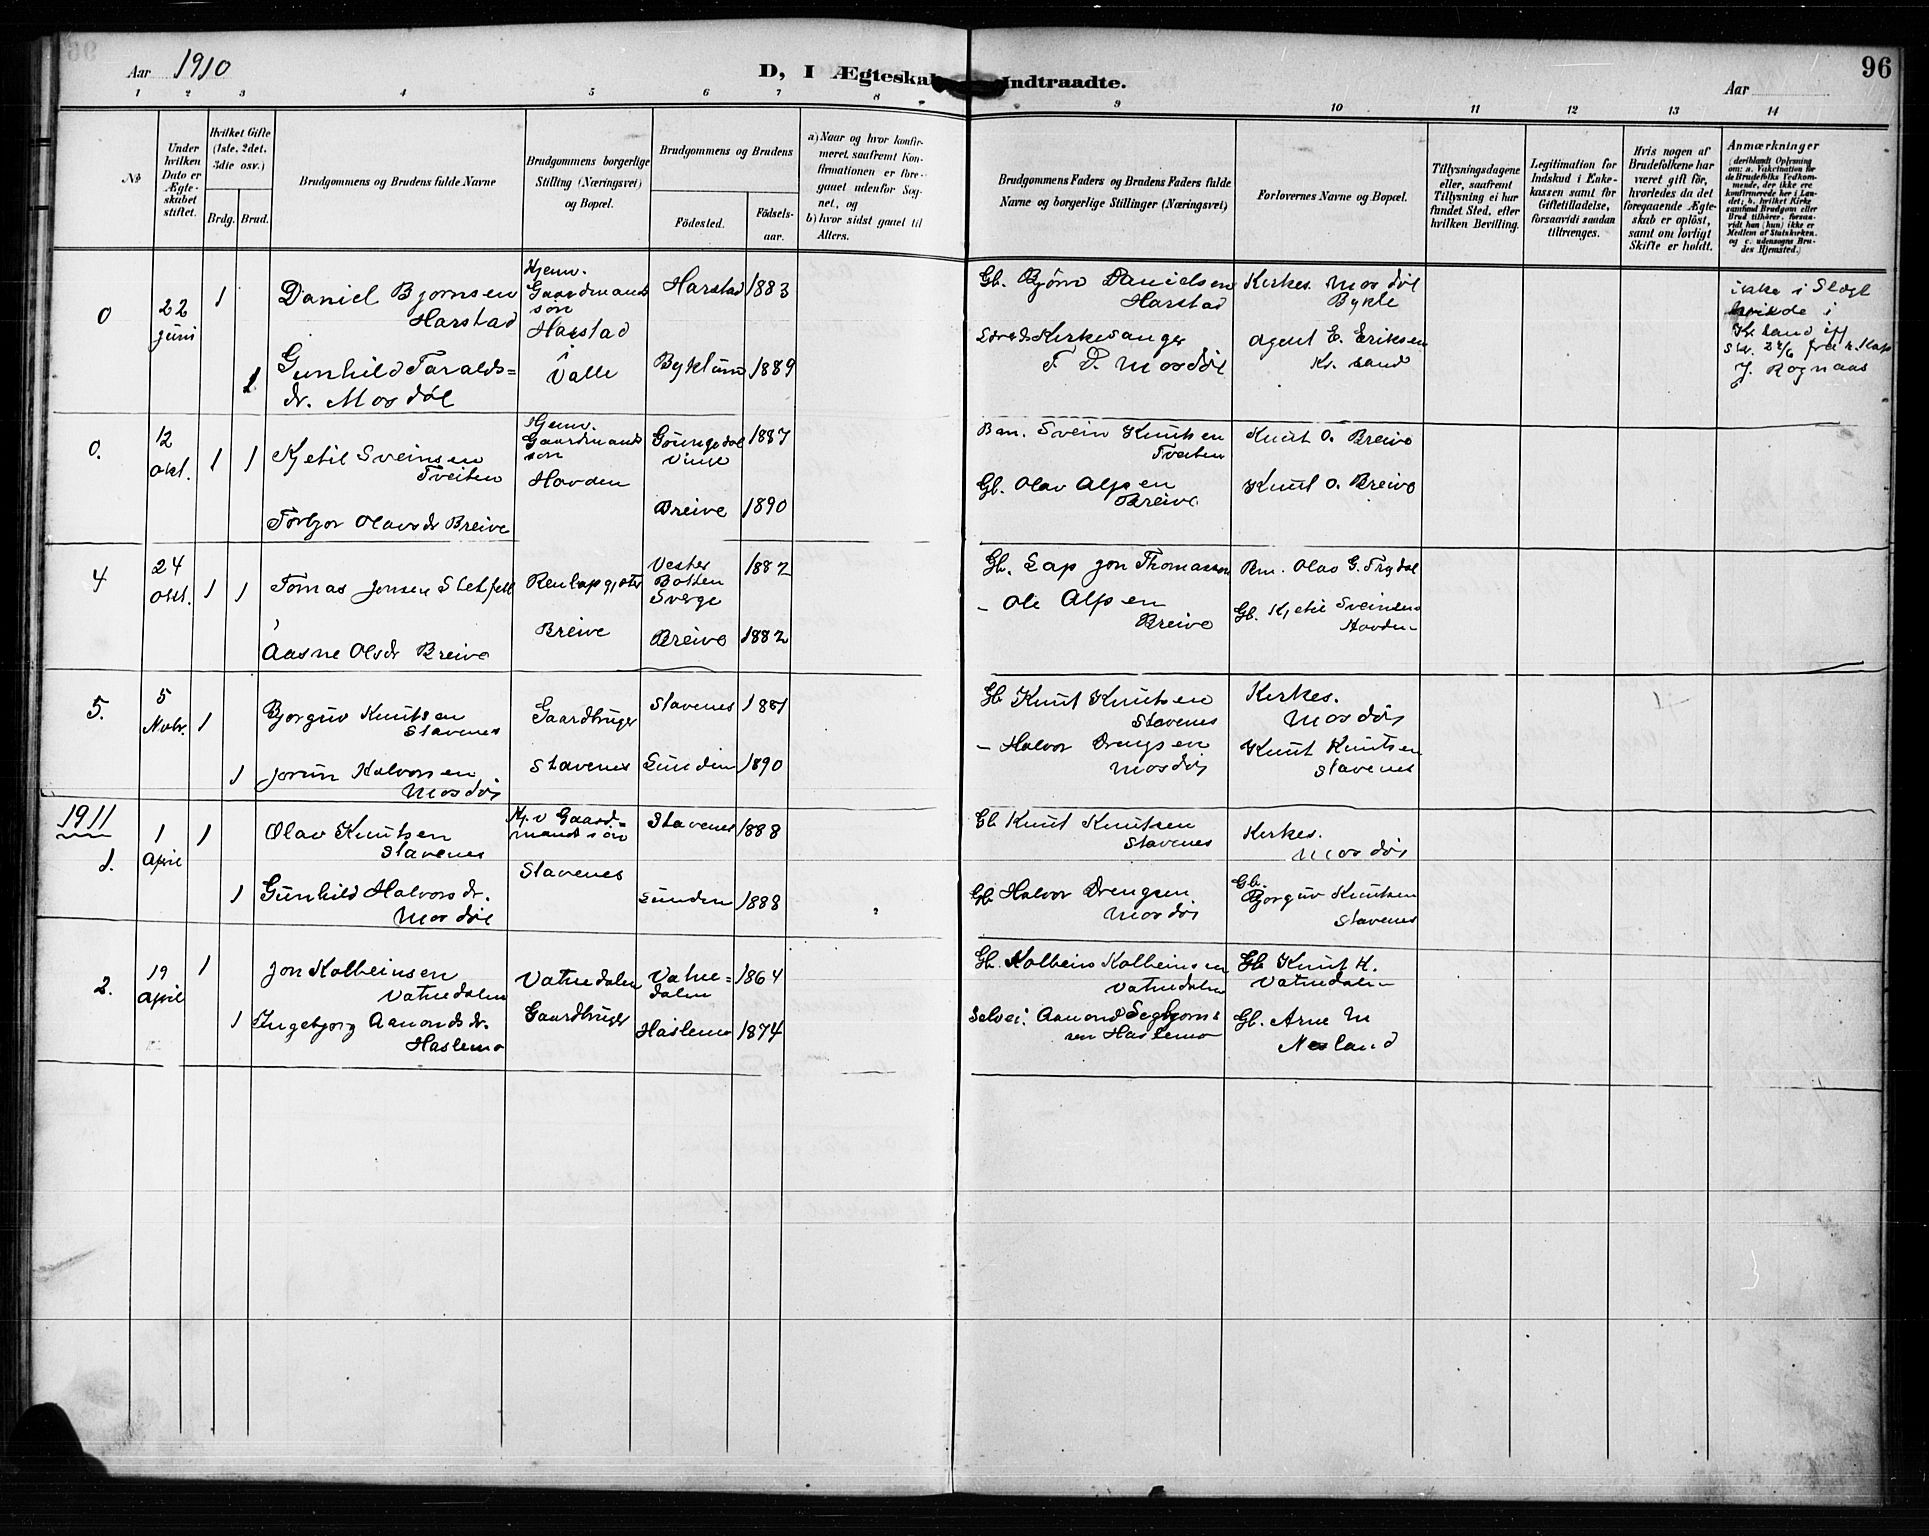 Aar 1910
D, I Ægteskab Indtraadte.
96
Aar
1 2 3 4 5 6 7 8 9 10 11 12 13 14
№
Under hvilken Dato er Ægteskabet stiftet.
Hvilket Gifte (1ste, 2det, 3die osv.)
Brdg. Brud.
Brudgommens og Brudens fulde Navne
Brudgommens borgerlige Stilling (Næringsvei) og Bopæl.
Brudgommens og Brudens
Fødested.
Fødselsaar.
a) Naar og hvor konfirmeret, saafremt Konfirmationen er foregaaet udenfor Sognet, og
b) hvor sidst gaaet til Alters.
Brudgommens Faders og Brudens Faders fulde Navne og borgerlige Stillinger (Næringsvei)
Forlovernes Navne og Bopæl.
Tillysningsdagene eller, saafremt Tillysning ei har fundet Sted, efter hvilken Bevilling.
Legitimation for Indskud i Enkekassen samt for Giftetilladelse, forsaavidt saadan tiltrænges.
Hvis nogen af Brudefolkene har været gift før, hvorledes da det foregaaende Ægteskab er opløst, samt om lovligt Skifte er holdt.
Anmærkninger
(deriblandt Oplysning om: a. Vakcination for de Brudefolks Vedkommende, der ikke ere konfirmerede her i Landet; b. hvilket Kirkesamfund Brudgom eller Brud tilhører, forsaavidt han (hun) ikke er Medlem af Statskirken, og c. udensogns Brudes Hjemsted.)
0 22 juni 1
Daniel Bjørnsen Harstad
Hjemv. Gaardmandssøn Harstad i Valle
Harstad 1883
Gb. Bjørn Danielsen Harstad
Kirkes. Mosdøl Bykle
ikke i Slægt
i
Kr. sand
J. Rognaas
1 Gunhild Taraldsdr. Mosdøl
Byklum 1889
Kirkesanger T. D. Mosdøl
Agent E. Eriksen Kr. sand
0. 12 okt. 1 1
Kjetil Sveinsen Tveiten
Hjemv. Gaardmandssøn Hovden
Grungedal Vinje 1887
Bm. Svein Knutsen Tveiten
Knut O. Breive
Torbjor Olavsdr Breive
Breive 1890
Gb. Olav Alfsen Breive
Knut O. Breive
4 24 okt. 1 1
Tomas Jonsen
Breive
Vester Botten Sverge 1882
Gb. Lap Jon Thomassen
Bm. Olav G. Trydal
Aasne Olsdr Breive
Breive 1882
- Ole Alfsen Breive
Gb. Kjetil Sveinsen Hovden
5. 5 Novbr. 1
Bjorguv Knutsen Stavenes
Gaardbruger Stavenes
Stavenes 1881
Gb Knut Knutsen Stavenes
Kirkes. Mosdøl
1 Jorun Halvorsen Mosdøl
Sunden 1890
- Halvor Drengsen Mosdøl
Knut Knutsen Stavenes
1911
1. 1 April 1
Olav Knutsen Stavenes
Hj. v Gaardmandssøn Stavenes
Stavenes 1888
Gb Knut Knutsen Stavenes
Kirkes. Mosdøl
1 Gunhild Halvorsdr. Mosdøl
Sunden 1888
Gb Halvor Drengsen Mosdøl
Gb. Bjorguv Knutsen Stavenes
2. 19 April 1
Jon Kolbeinsen Vatnedalen
Vatnedalen Gaardbruger
Vatnedalen 1864
Gb. Kolbein Kolbeinsen Vatnedalen
Gb Knut K. Vatnedalen
1 Ingebjørg Aamondsdr. Haslemo
Haslemo 1874
Selvei. Aamond Segbjørnsen Haslemo
Gb. Arne M Nesland